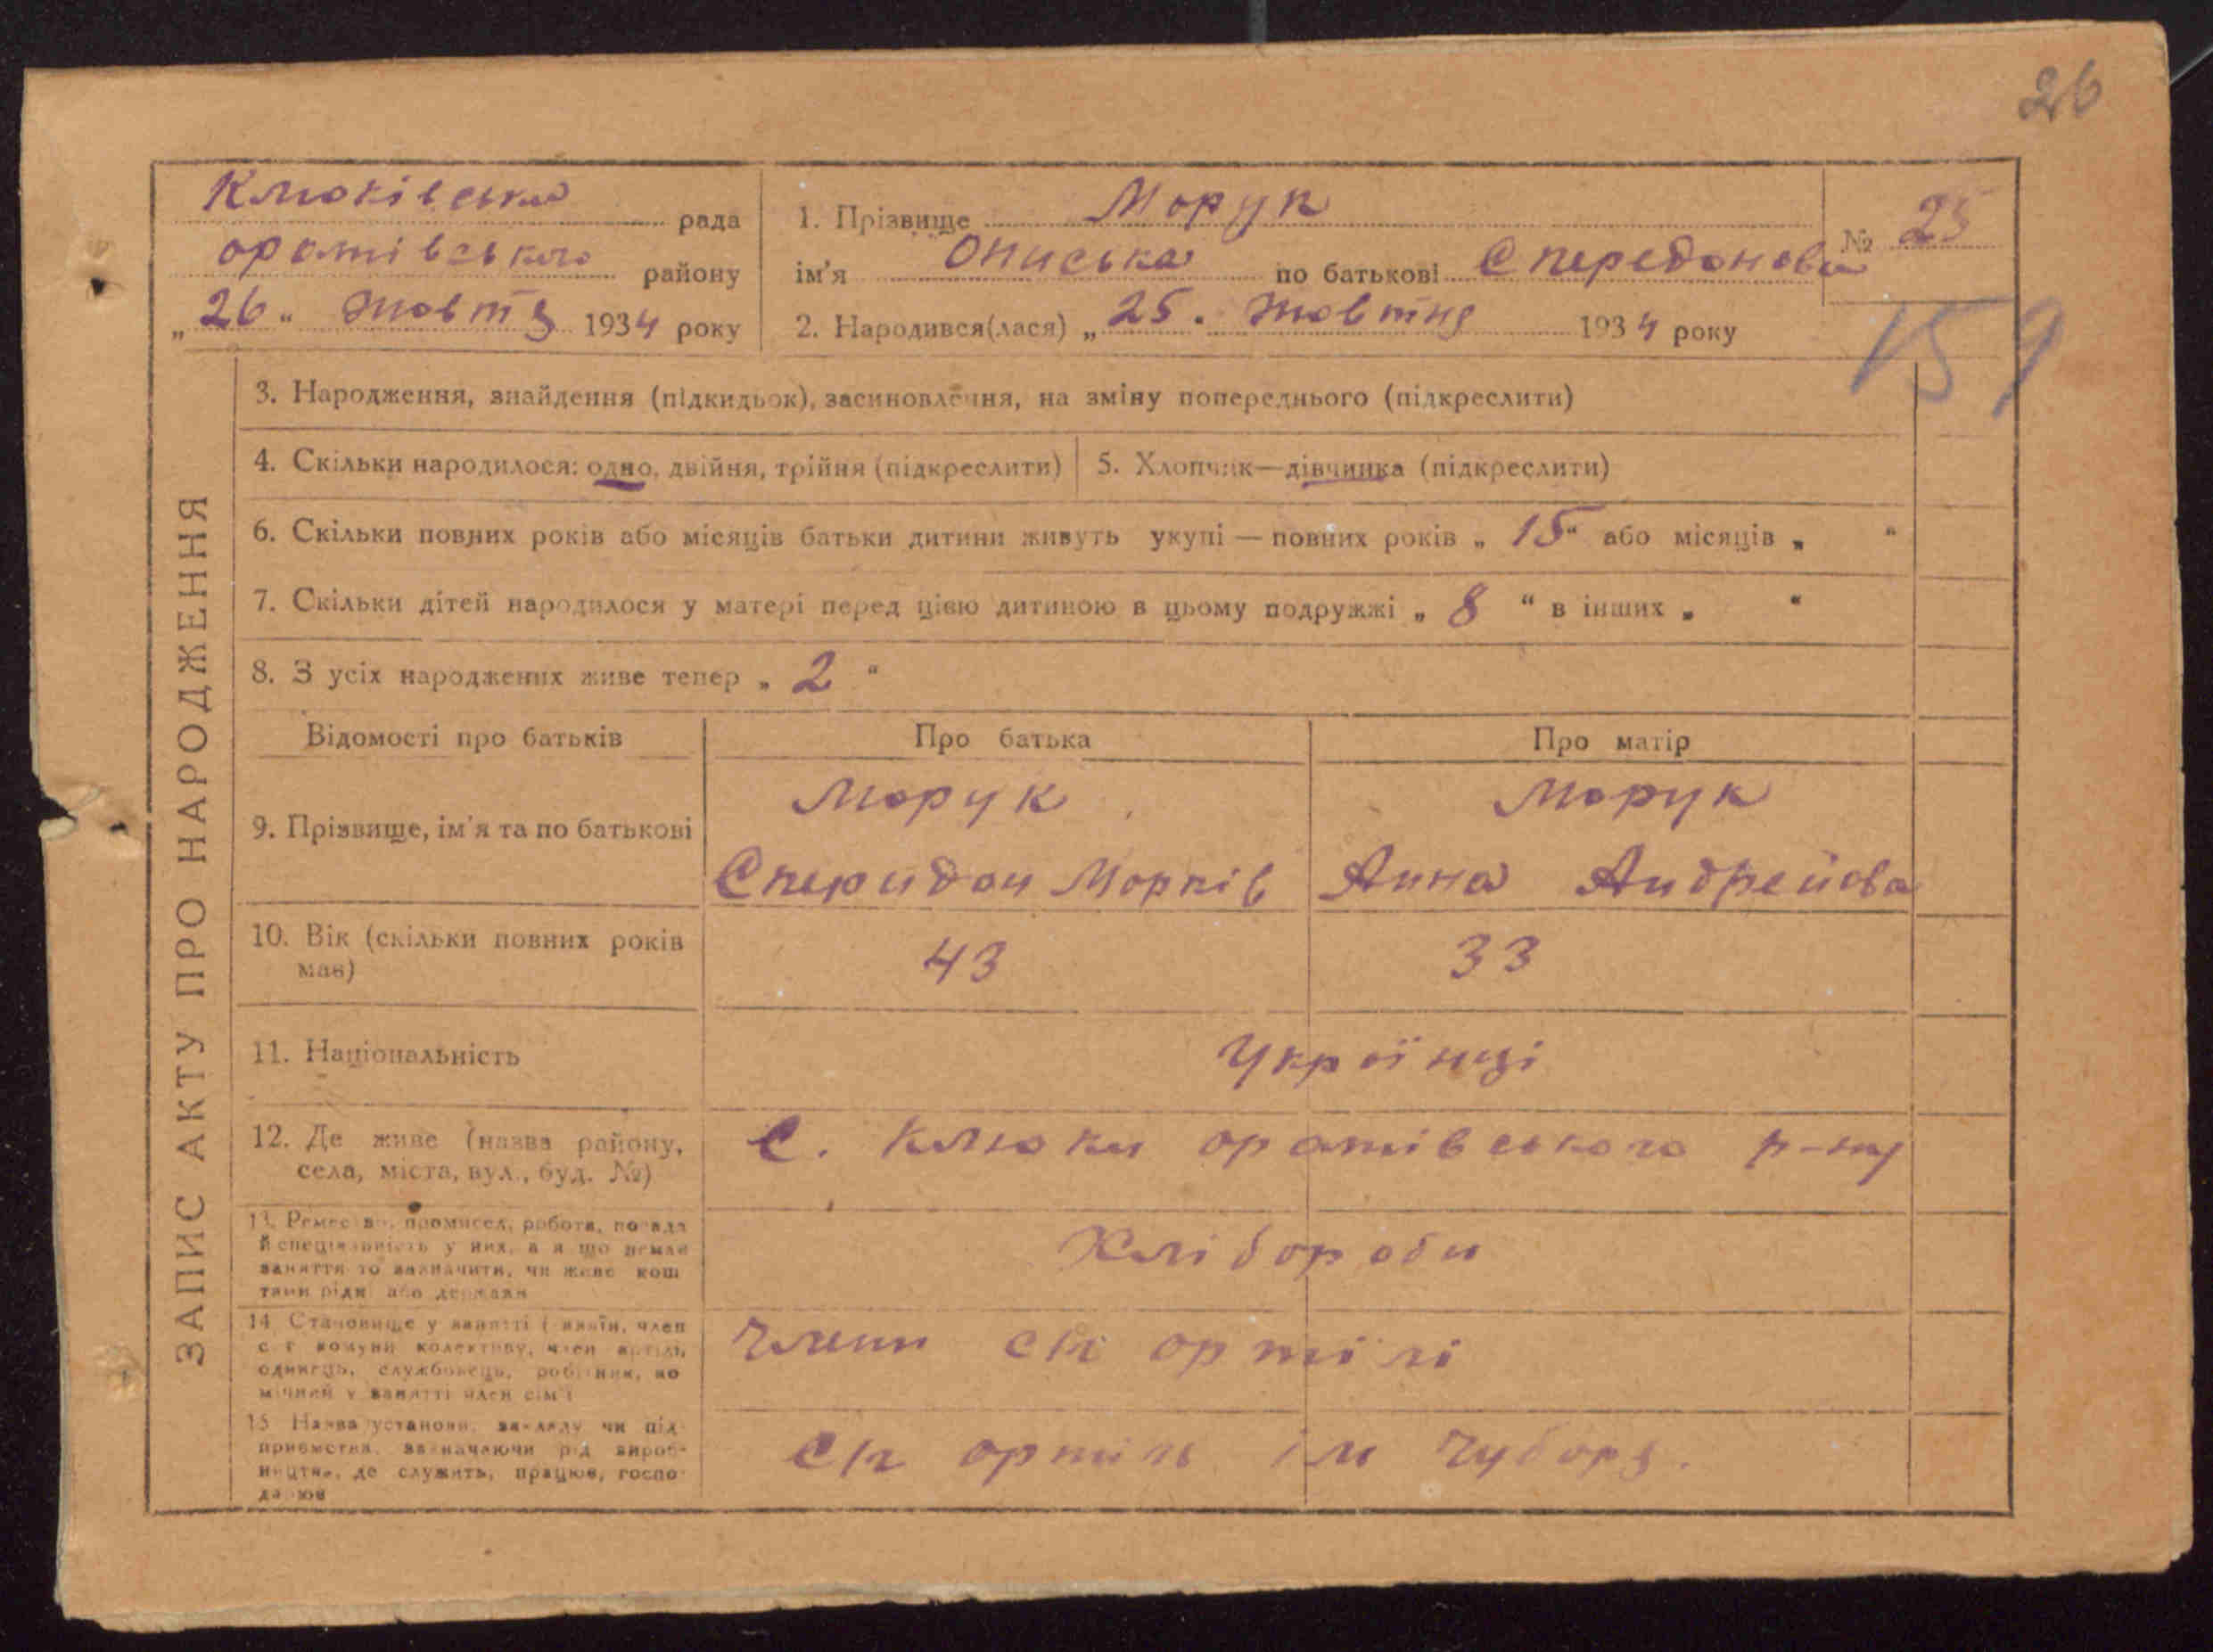 26
Клюківська рада
оратівського району
„26“ жовтня 1934 року
1. Прізвище Морук
ім'я Ониська по батькові Спередонова
№ 25
2. Народився(лася) „25. жовтня 1934 року
159
ЗАПИС АКТУ ПРО НАРОДЖЕННЯ
3. Народження, знайдення (підкидьок), засиновлення, на зміну попереднього (підкреслити)
4. Скільки народилося: одно, двійня, трійня (підкреслити)
5. Хлопчик—дівчинка (підкреслити)
6. Скільки повних років або місяців батьки дитини живуть укупі — повних років „ 15 “ або місяців „ “
7. Скільки дітей народилося у матері перед цією дитиною в цьому подружжі „ 8 “ в інших „ “
8. З усіх народжених живе тепер „ 2 “
Відомості про батьків
Про батька
Про матір
9. Прізвище, ім'я та по батькові
Морук
Сперидон Марків
Морук
Анна Андрейова
10. Вік (скільки повних років має)
43
33
11. Національність
Українці
12. Де живе (назва району,
села, міста, вул., буд. №)
с. Клюки оратівського р-ну
13. Ремество, промисел, робота, посада
й спеціяльність у них, а якщо немає
заняття то зазначити, чи живе кош
тами рідні або держави
Хлібороби
14 Становище у занятті (хазяїн, член
с г комуни колективу, член артіль,
одинець, службовець, робітник, по
мічний у занятті член сім'ї
Члени с/г артілі
15 Назва установи, закладу чи під
приємства, зазначаючи рід вироб-
ництва, де служить, працює, госпо
дарює
с/г артіль ім Чубаря.